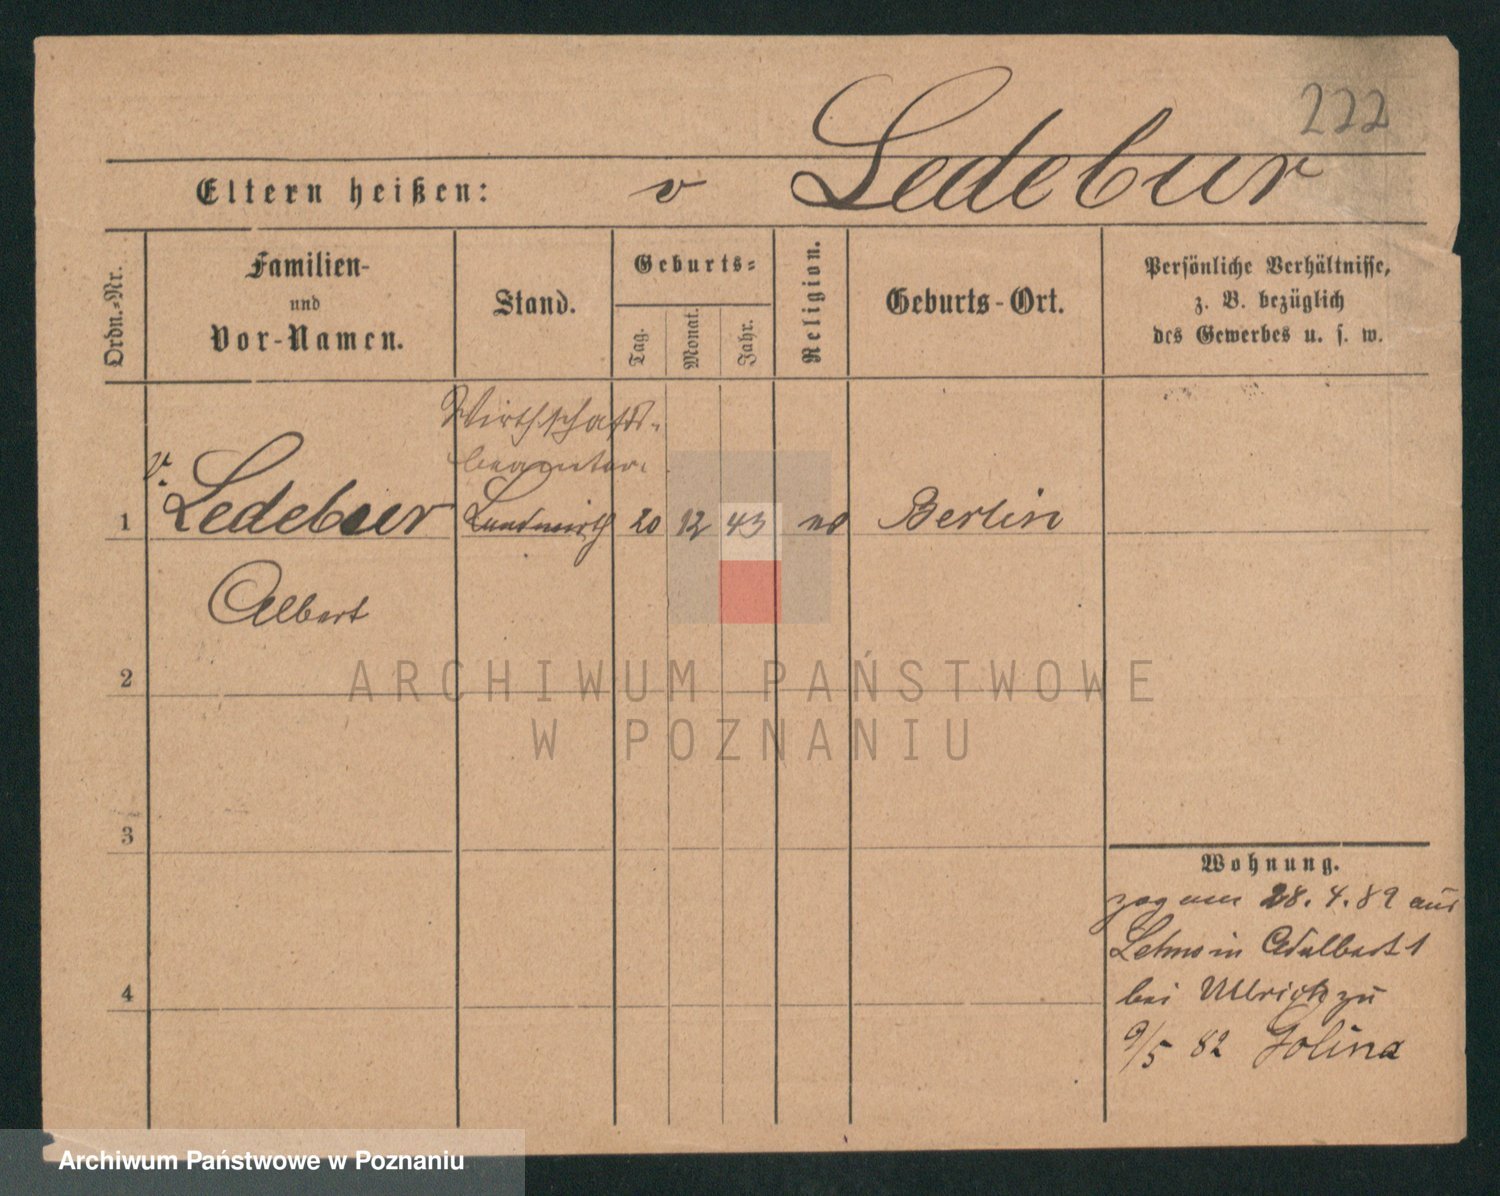 222
Eltern heißen: v Ledebur
Ordn.-Nr.
Familien-
und
Vor-Namen.
Stand.
Geburts-
Tag.
Monat.
Jahr.
Religion.
Geburts-Ort.
Persönliche Verhältnisse,
z. B. bezüglich
des Gewerbes u. s. w.
Wirthschafts-
beamter.
1 v. Ledebur Landwirth 20 12 43 Berlin
Albert
2
3
4
Wohnung.
zog am 28. 4. 89 aus
in Adalbert 1
bei Ullrich zu
9/5 82 Golina
ARCHIWUM PAŃSTWOWE
W POZNANIU
Archiwum Państwowe w Poznaniu